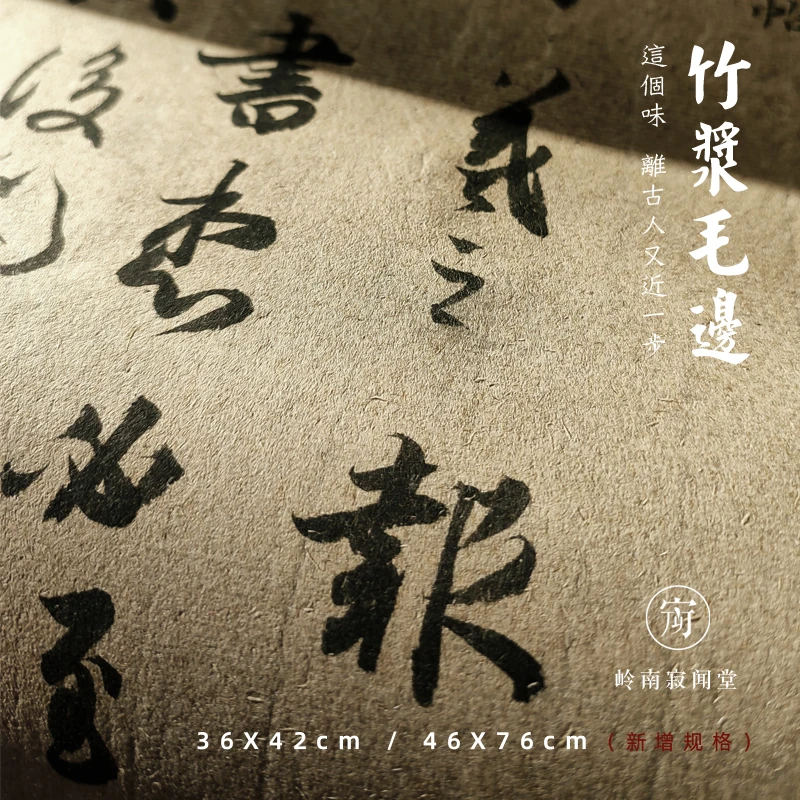 竹漿毛邊
這個味 離古人又近一步
羲之
報
書
必至
岭南寂闻堂
36X42cm / 46X76cm（新增规格）